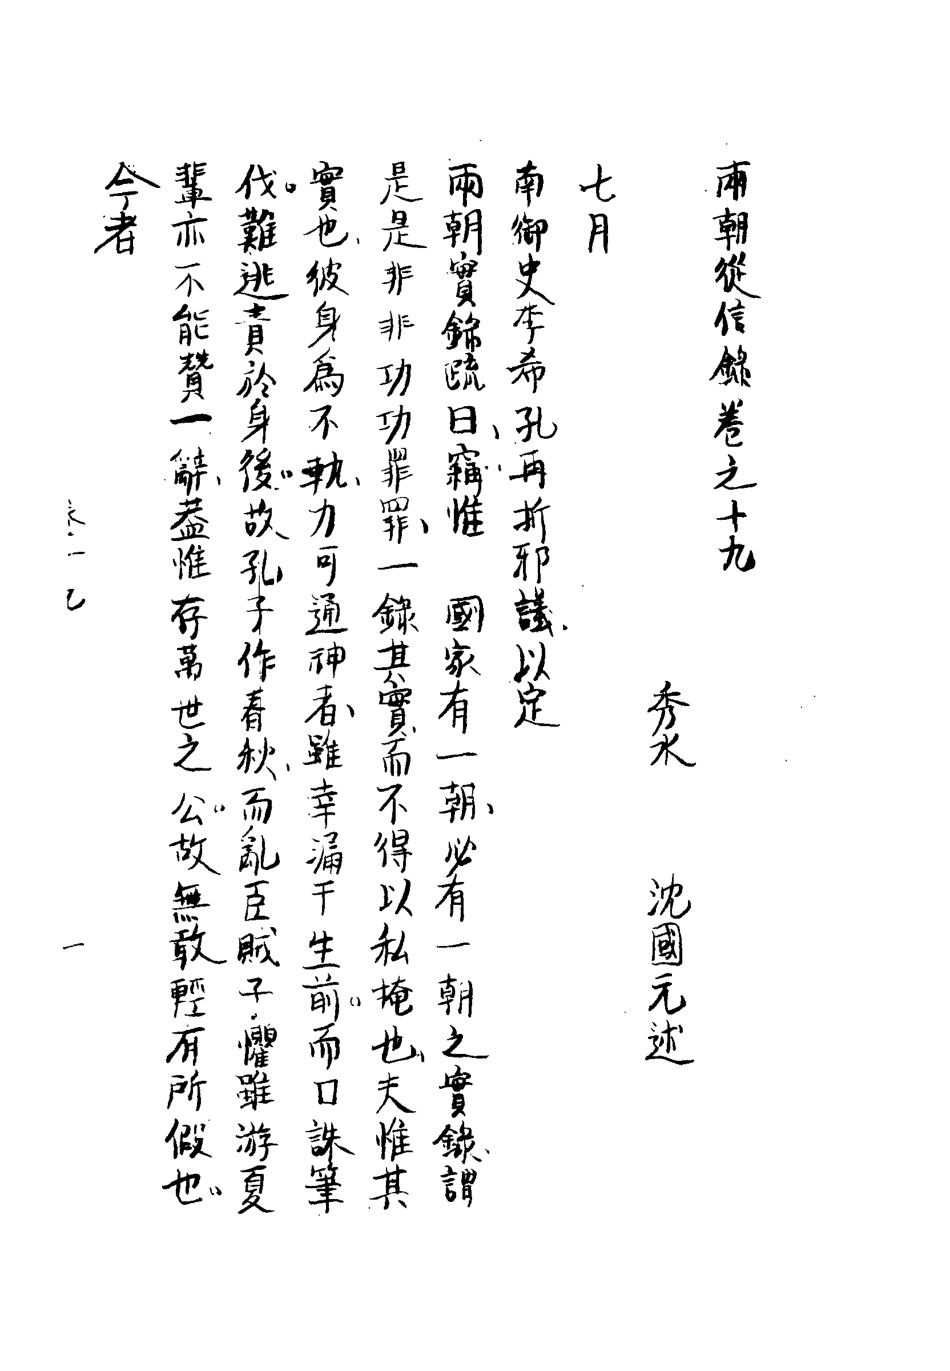 兩朝從信錄卷之十九
秀水　沈國元述
七月
南御史李希孔再折邪議、以定
兩朝實錄疏曰、竊惟　國家有一朝、必有一朝之實錄、謂
是是非非功功罪罪、一錄其實、而不得以私掩也、夫惟其
實也、彼身為不軌、力可通神者、雖幸漏于生前。而口誅筆
伐。難逃責於身後。故孔子作春秋、而亂臣賊子懼雖游夏
輩亦不能贊一辭、蓋惟存萬世之公。故無敢輕有所假也。
今者
一